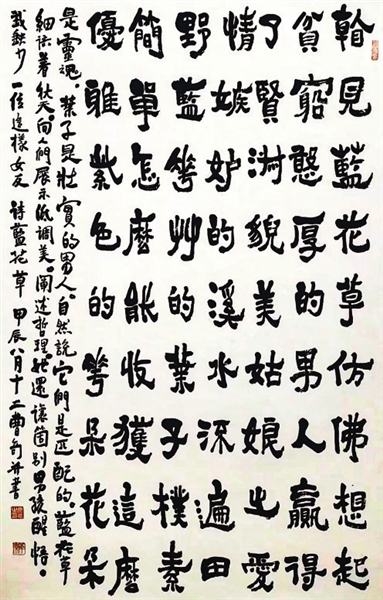 見藍花草仿佛想起
貧窮憨厚的男人贏得
了賢淑貌美姑娘之愛
情嫉妒的溪水流遍田
野藍華艸的葉子樸素
簡單怎麼能收獲這麼
優雅紫色的華朵花朵
是靈魂。葉子是壯實的男人。自然說它們是匹配的。藍花草
細訴着秋天。向人們展示低調美。闡述哲理。還讓箇別男孩醒悟。
我缺少一位這樣女友 詩藍花草 甲辰八月十二曹并書